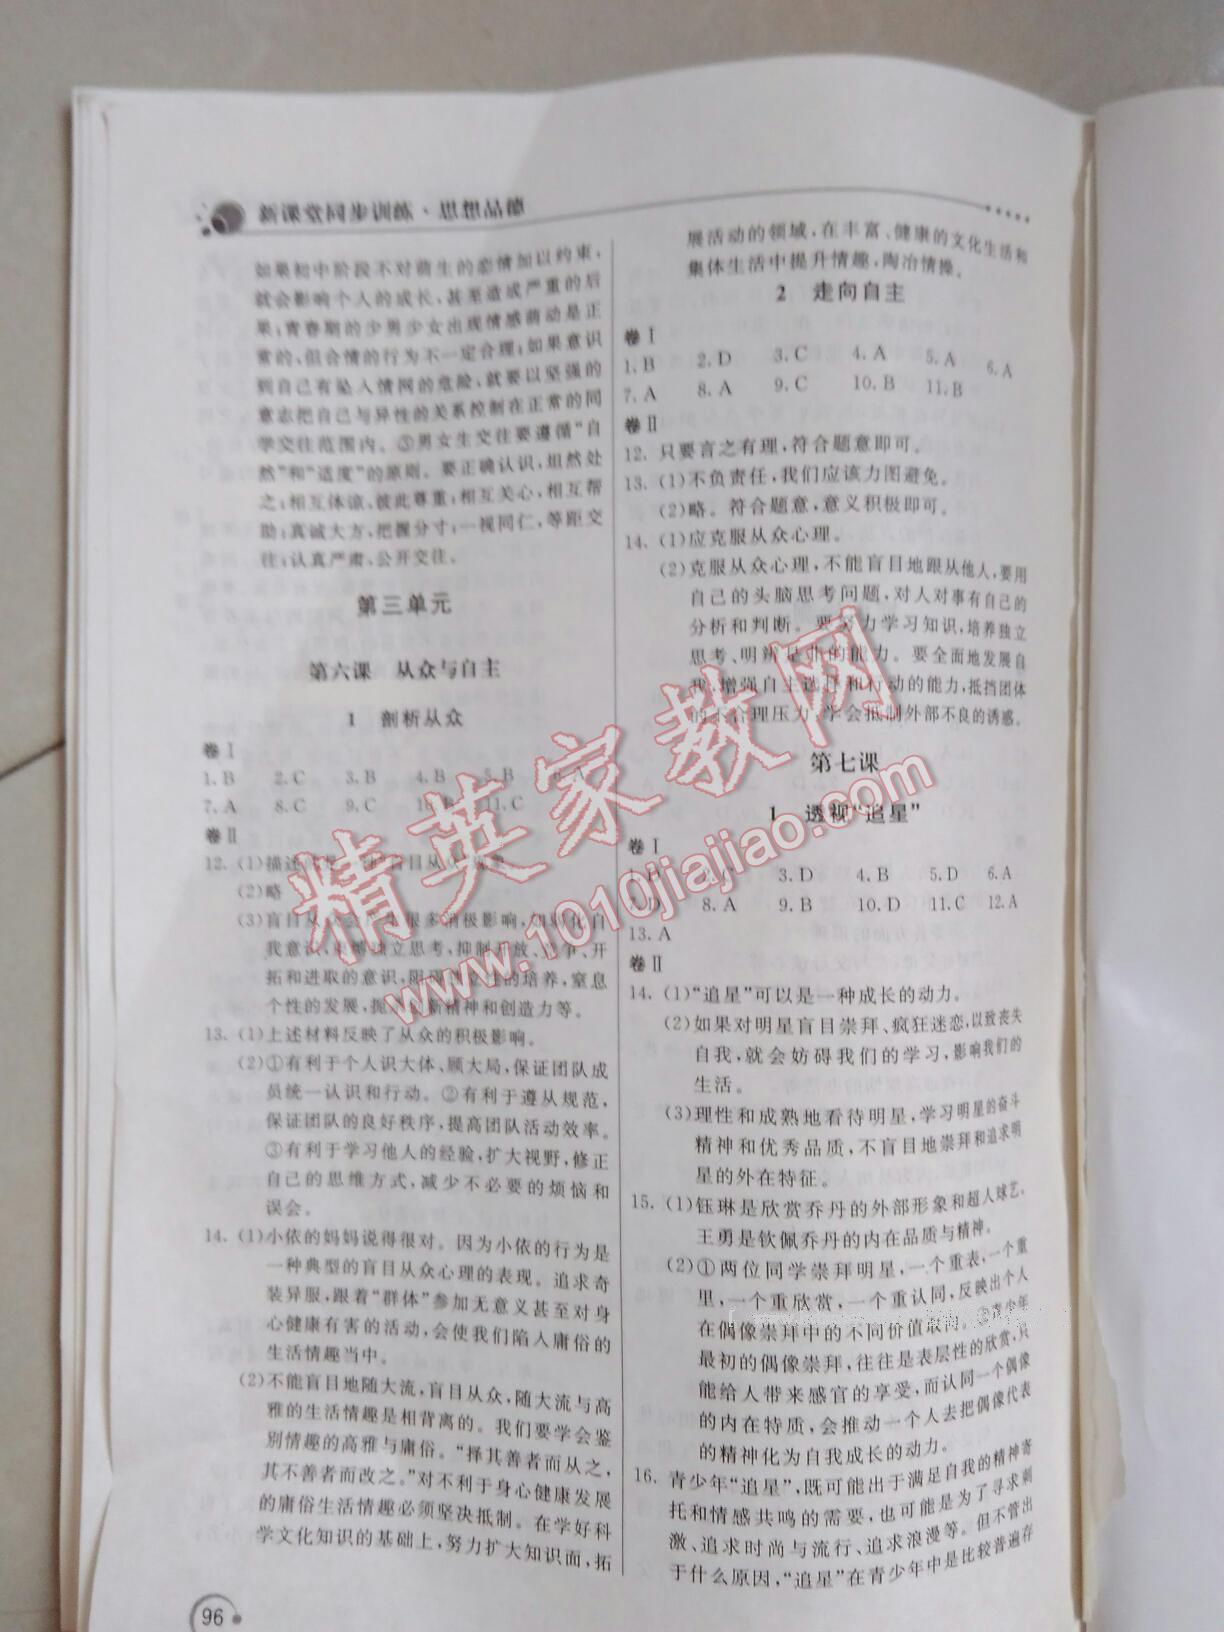 新课堂同步训练·思想品德
如果初中阶段不对萌生的恋情加以约束，
就会影响个人的成长，甚至造成严重的后
果；青春期的少男少女出现情感萌动是正
常的，但合情的行为不一定合理；如果意识
到自己有坠入情网的危险，就要以坚强的
意志把自己与异性的关系控制在正常的同
学交往范围内。③男女生交往要遵循“自
然”和“适度”的原则。要正确认识，坦然处
之；相互体谅，彼此尊重；相互关心，相互帮
助；真诚大方，把握分寸；一视同仁，等距交
往；认真严肃，公开交往。
第三单元
第六课 从众与自主
1 剖析从众
卷Ⅰ
1. B 2. C 3. B 4. B 5. B 6. A
7. A 8. C 9. C 10. B 11. C
卷Ⅱ
12. (1)描述的是一种盲目从众现象。
(2)略
(3)盲目从众会产生很多消极影响，如弱化自
我意识，束缚独立思考，抑制开放、竞争、开
拓和进取的意识，阻碍独立性的培养，窒息
个性的发展，扼杀创新精神和创造力等。
13. (1)上述材料反映了从众的积极影响。
(2)①有利于个人识大体、顾大局，保证团队成
员统一认识和行动。②有利于遵从规范，
保证团队的良好秩序，提高团队活动效率。
③有利于学习他人的经验，扩大视野，修正
自己的思维方式，减少不必要的烦恼和
误会。
14. (1)小依的妈妈说得很对。因为小依的行为是
一种典型的盲目从众心理的表现。追求奇
装异服，跟着“群体”参加无意义甚至对身
心健康有害的活动，会使我们陷入庸俗的
生活情趣当中。
(2)不能盲目地随大流，盲目从众，随大流与高
雅的生活情趣是相背离的。我们要学会鉴
别情趣的高雅与庸俗。“择其善者而从之，
其不善者而改之。”对不利于身心健康发展
的庸俗生活情趣必须坚决抵制。在学好科
学文化知识的基础上，努力扩大知识面，拓
96
展活动的领域，在丰富、健康的文化生活和
集体生活中提升情趣，陶冶情操。
2 走向自主
卷Ⅰ
1. B 2. D 3. C 4. A 5. A 6. A
7. A 8. A 9. C 10. B 11. B
卷Ⅱ
12. 只要言之有理，符合题意即可。
13. (1)不负责任，我们应该力图避免。
(2)略。符合题意，意义积极即可。
14. (1)应克服从众心理。
(2)克服从众心理，不能盲目地跟从他人，要用
自己的头脑思考问题，对人对事有自己的
分析和判断。要努力学习知识，培养独立
思考、明辨是非的能力。要全面地发展自
我，增强自主选择和行动的能力，抵挡团体
的不合理压力，学会抵制外部不良的诱惑。
第七课
1 透视“追星”
卷Ⅰ
1. B 2. C 3. D 4. B 5. D 6. A
7. D 8. A 9. B 10. D 11. C 12. A
13. A
卷Ⅱ
14. (1)“追星”可以是一种成长的动力。
(2)如果对明星盲目崇拜、疯狂迷恋，以致丧失
自我，就会妨碍我们的学习，影响我们的
生活。
(3)理性和成熟地看待明星，学习明星的奋斗
精神和优秀品质，不盲目地崇拜和追求明
星的外在特征。
15. (1)钰琳是欣赏乔丹的外部形象和超人球艺，
王勇是钦佩乔丹的内在品质与精神。
(2)①两位同学崇拜明星，一个重表，一个重
里，一个重欣赏，一个重认同，反映出个人
在偶像崇拜中的不同价值取向。②青少年
最初的偶像崇拜，往往是表层性的欣赏，只
能给人带来感官的享受，而认同一个偶像
的内在特质，会推动一个人去把偶像代表
的精神化为自我成长的动力。
16. 青少年“追星”，既可能出于满足自我的精神寄
托和情感共鸣的需要，也可能是为了寻求刺
激、追求时尚与流行、追求浪漫等。但不管出
于什么原因，“追星”在青少年中是比较普遍存
精英家教网
www.1010jiajiao.com